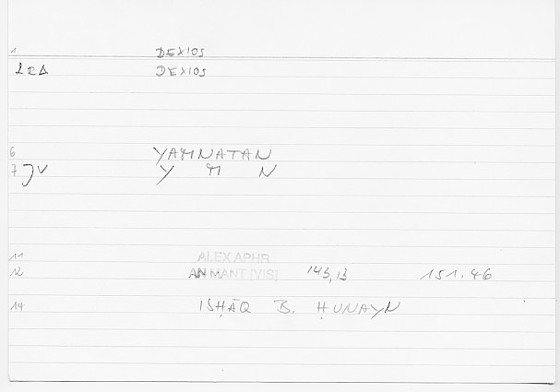 1 DEXIOS
DEXIOS
6 YAMNATAN
7 JV Y M N
11 ALEX APHR
12 AN MANT [VIS] 143,13 151.46
14 ISḤĀQ B. ḤUNAYN